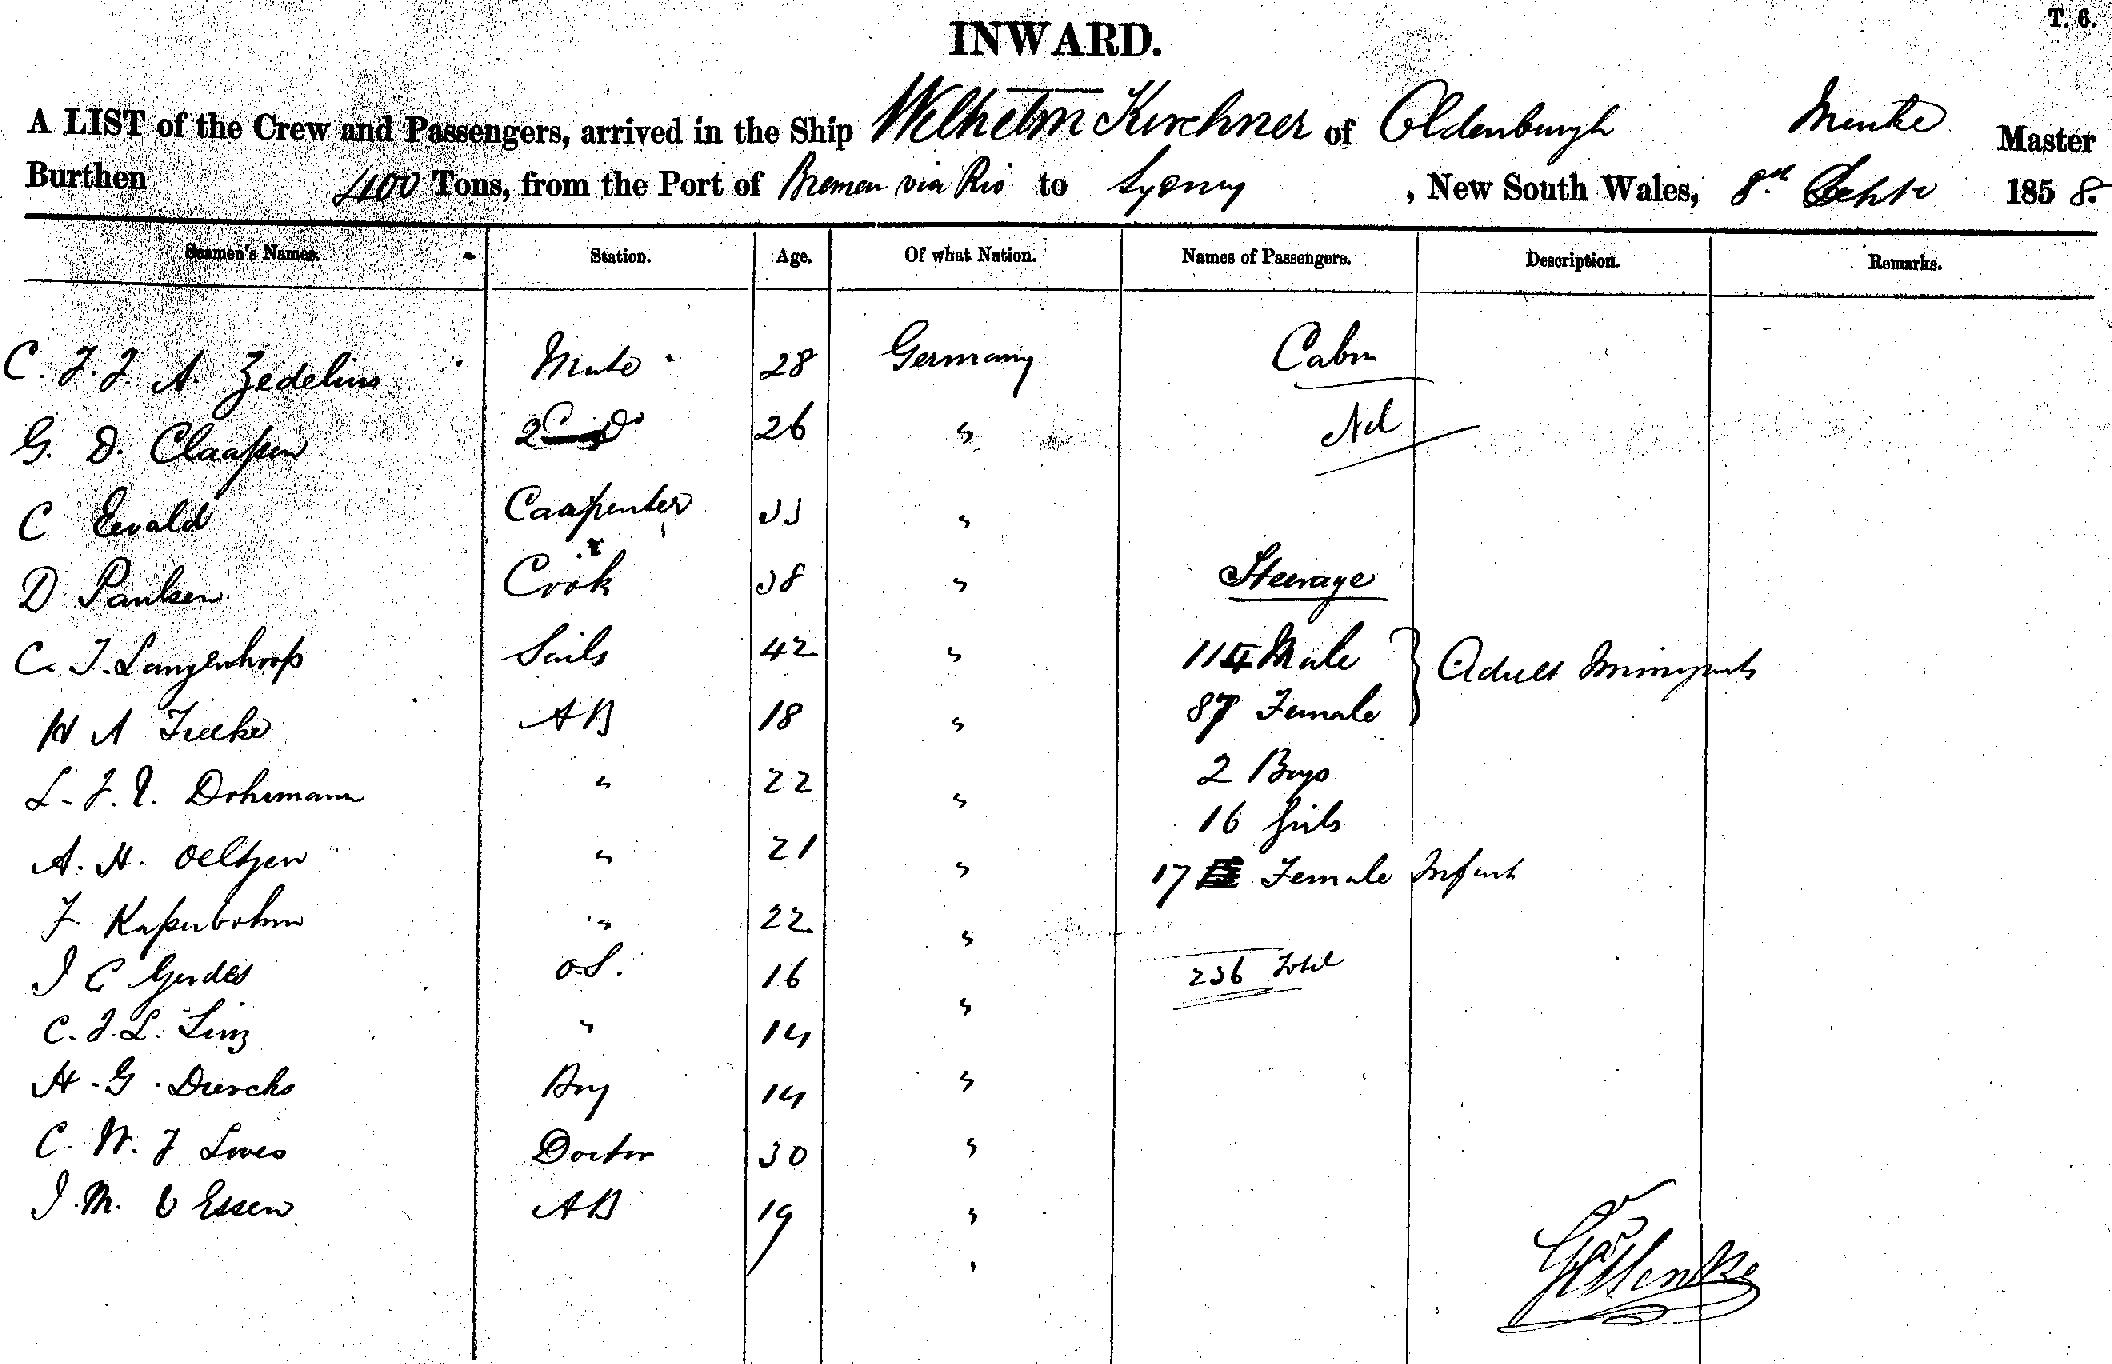 T. 6.
INWARD.
A LIST of the Crew and Passengers, arrived in the Ship Welhelm Kirchner of Oldenburgh Menke Master
Burthen 400 Tons, from the Port of Bremen via Rio to Sydney, New South Wales, 8th Septr 1858.
Seamen's Names. Station. Age. Of what Nation. Names of Passengers. Description. Remarks.
C. J. J. A. Zedelius Mate 28 Germany Cabin
G. D. Claassen 2 Do 26 " Nil
C Ewald Caarpenter 33 "
D Paulsen Cook 38 " Steerage
C. J. Langenhoop Sails 42 " 114 Male } Adult Immigrants
H A Fricke AB 18 " 87 Female
L. J. Dohrmann " 22 " 2 Boys
16 Girls
A. H. Oeltzen " 21 " 17 Female Infant
F Kassebohm " 22 "
J C Gerdes OS. 16 " 236 Total
C. J. L. Linz " 14 "
H. G. Diercks Boy 14 "
C. W. J Loves Doctor 30 "
J. M. V Essen AB 19 "
"
Menke